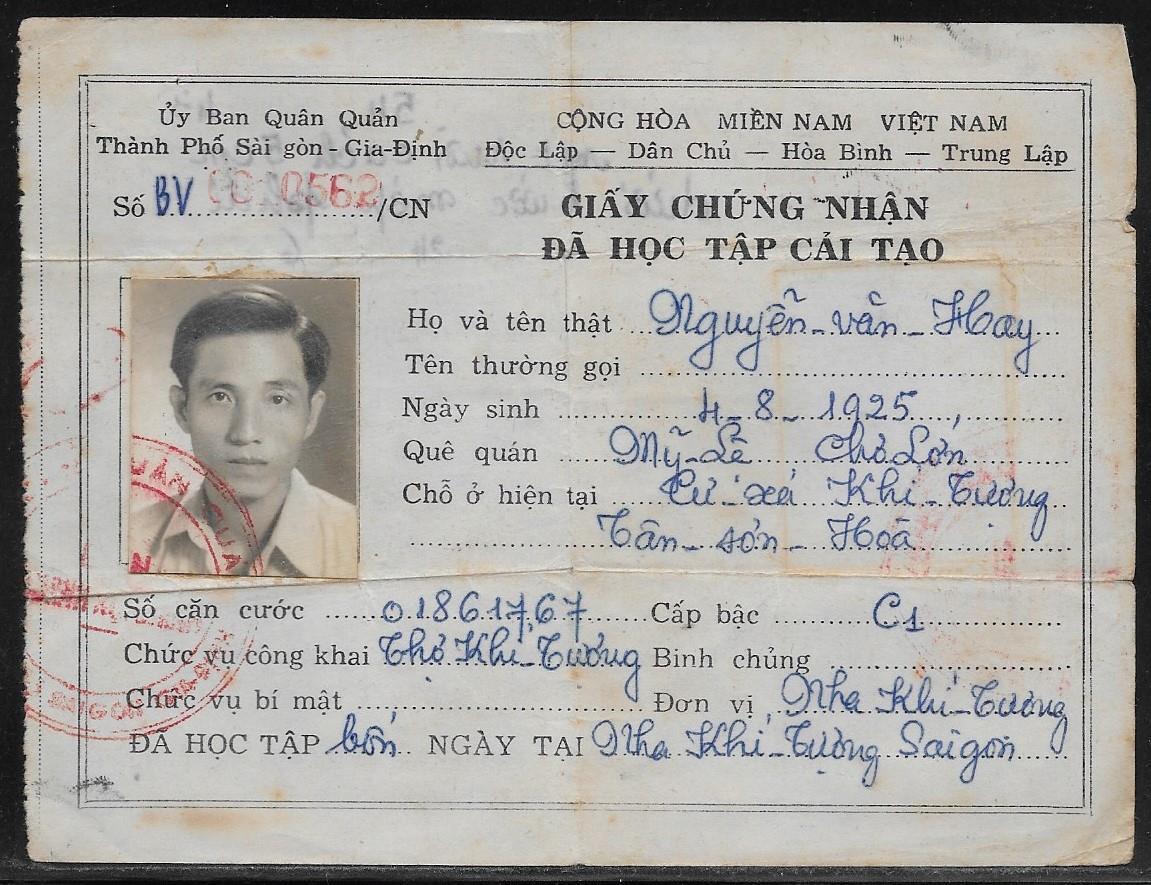 Ủy Ban Quân Quản
Thành Phố Sài gòn - Gia-Định
CỘNG HÒA MIỀN NAM VIỆT NAM
Độc Lập — Dân Chủ — Hòa Bình — Trung Lập
Số BV CC 0562/CN
GIẤY CHỨNG NHẬN
ĐÃ HỌC TẬP CẢI TẠO
Họ và tên thật Nguyễn-văn-Hay
Tên thường gọi
Ngày sinh 4-8-1925
Quê quán Mỹ-Lê Chợ Lớn
Chỗ ở hiện tại Cư xá Khí-Tượng
Tân-sơn-Hoà
Số căn cước 01861767 Cấp bậc C1
Chức vụ công khai Thợ Khí-Tượng Binh chủng
Chức vụ bí mật Đơn vị Nha Khí-Tượng
ĐÃ HỌC TẬP bốn NGÀY TẠI Nha Khí-Tượng Saigon